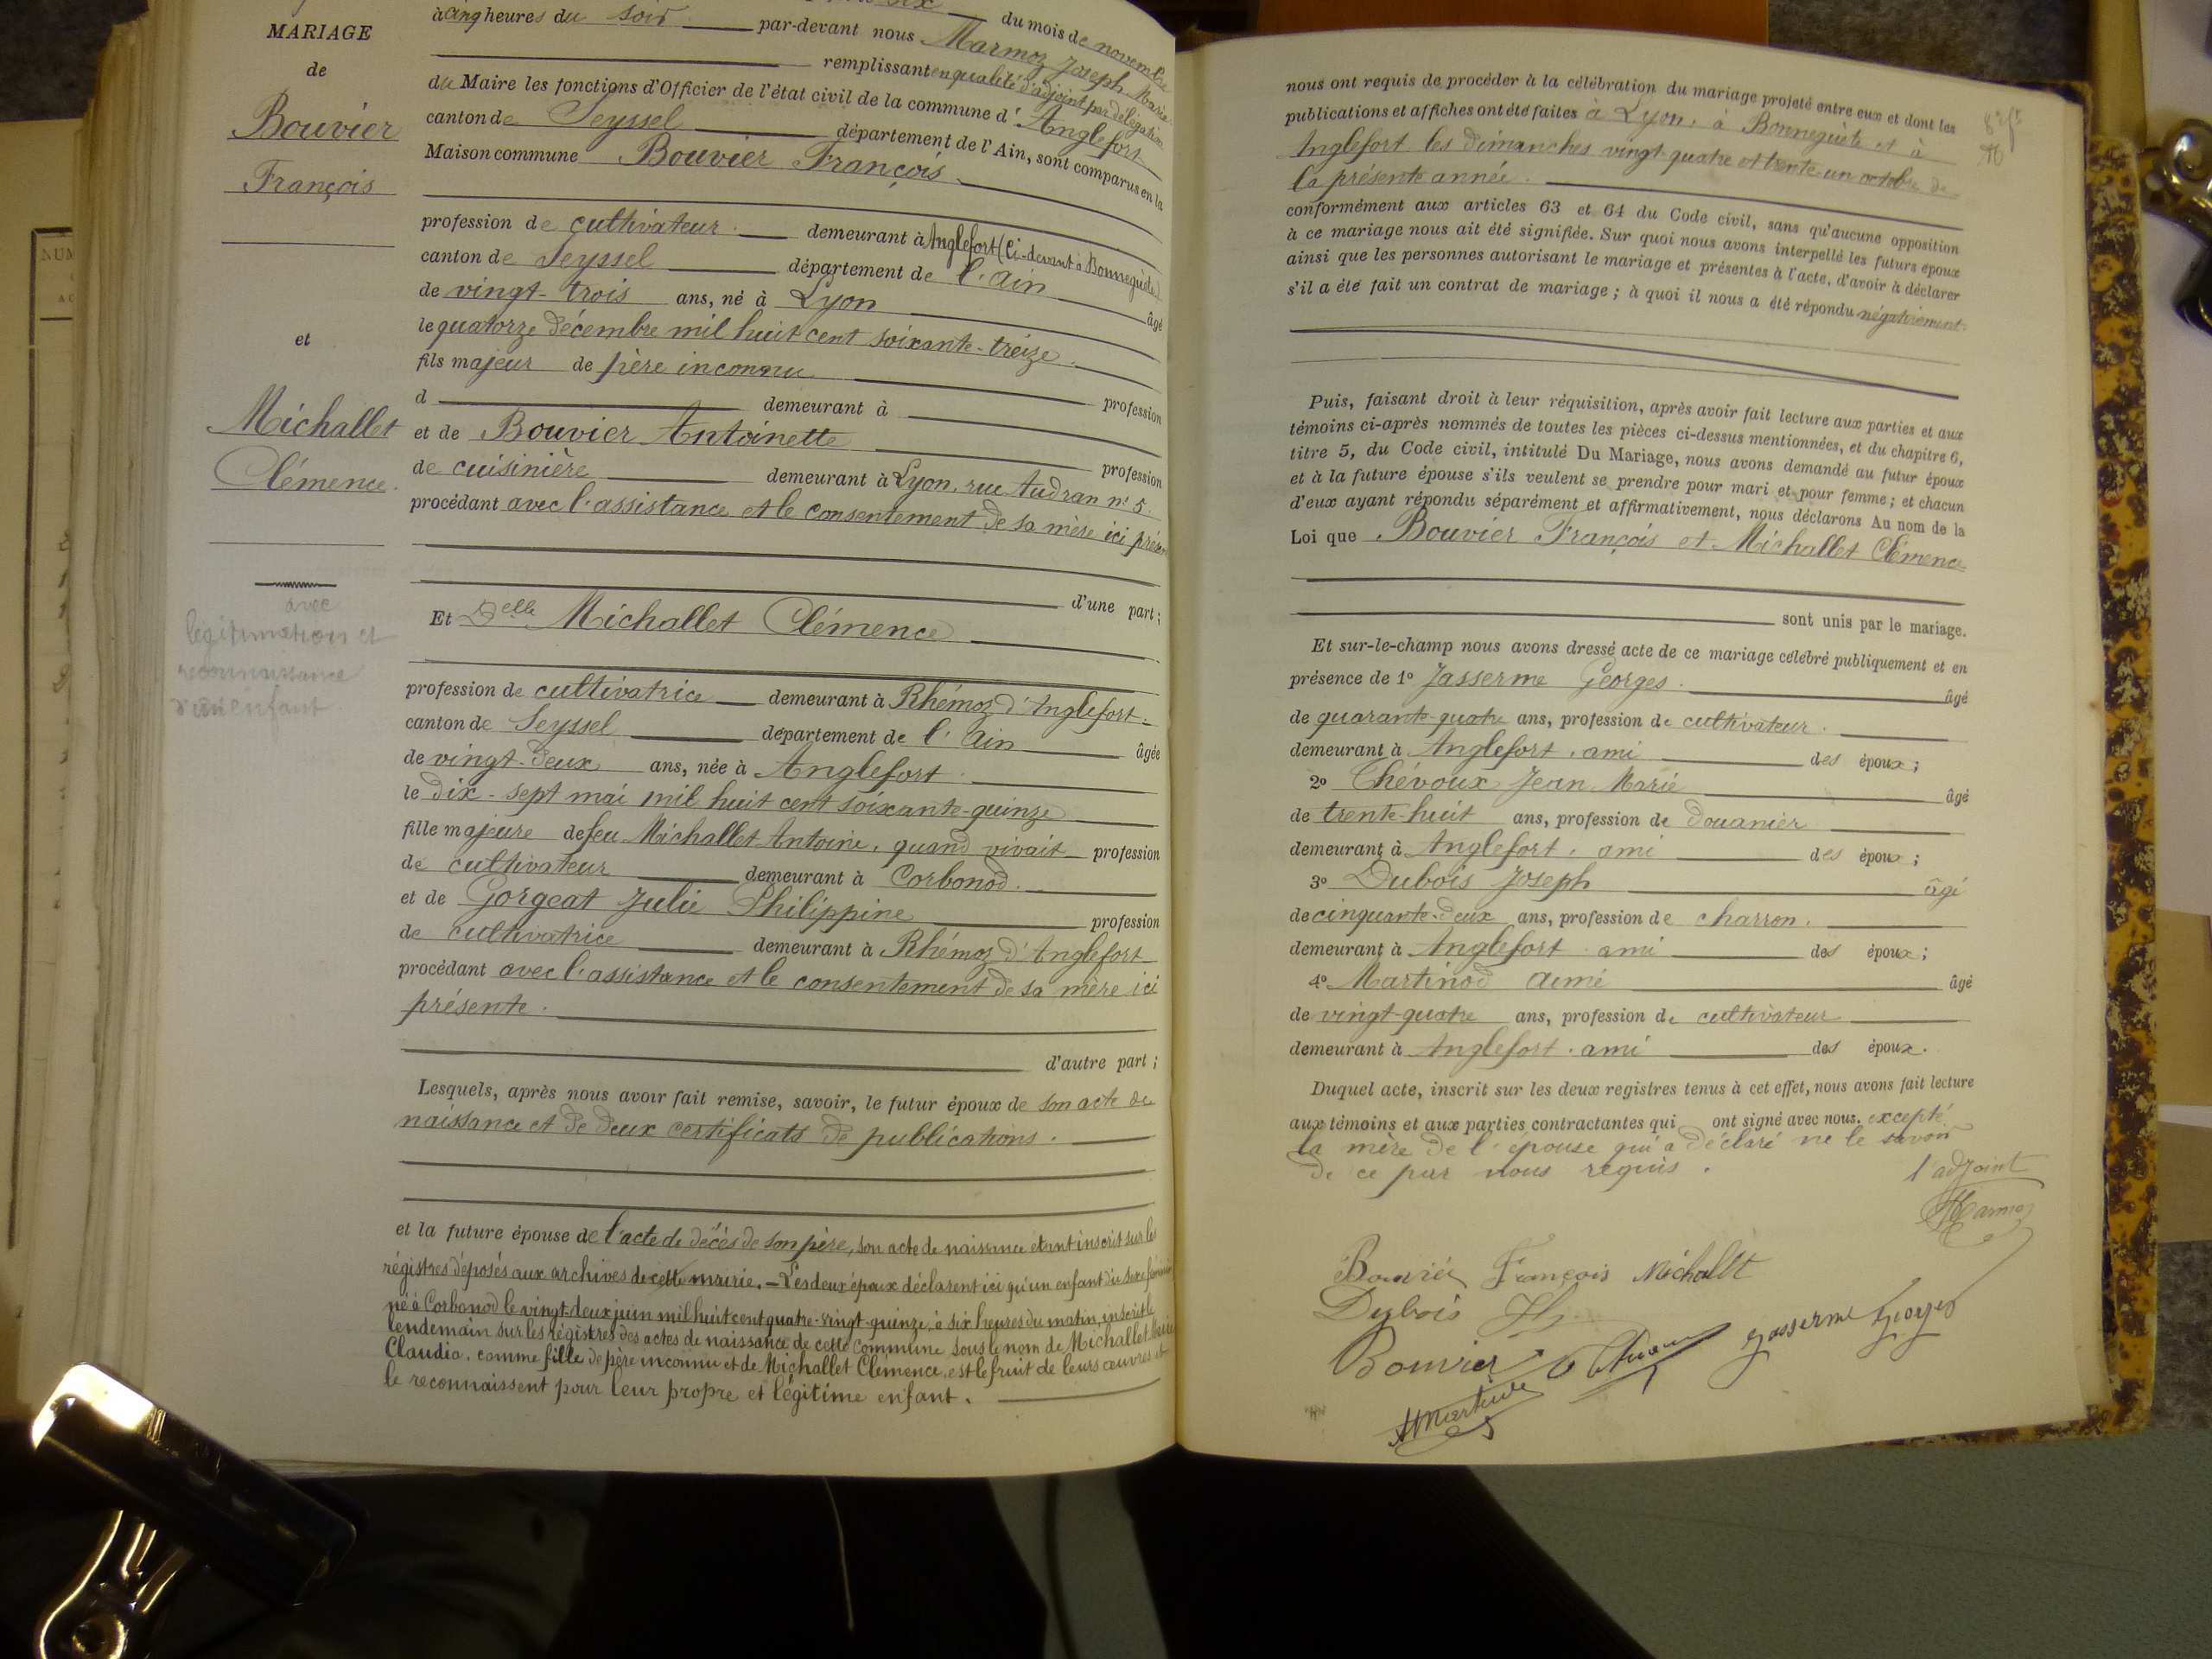 MARIAGE
de
Bouvier
François
et
Michallet
Clémence.
avec
légitimation et
reconnaissance
d'un enfant
six du mois de novembre
à cinq heures du soir par-devant nous Marmoz Joseph Marie
remplissant en qualité d'adjoint par délégation
du Maire les fonctions d'Officier de l'état civil de la commune d'Anglefort
canton de Seyssel département de l'Ain, sont comparus en la
Maison commune Bouvier François
profession de cultivateur demeurant à Anglefort (Ci-devant à Bonneguête)
canton de Seyssel département de l'Ain
âgé
de vingt-trois ans, né à Lyon
le quatorze décembre mil huit cent soixante-treize
fils majeur de père inconnu
profession
d demeurant à
et de Bouvier Antoinette
profession
de cuisinière demeurant à Lyon, rue Audran n° 5.
procédant avec l'assistance et le consentement de sa mère ici
d'une part;
Et Delle Michallet Clémence
profession de cultivatrice demeurant à Rhémoz d'Anglefort
canton de Seyssel département de l'Ain âgée
de vingt-deux ans, née à Anglefort
le dix-sept mai mil huit cent soixante-quinze
fille majeure de feu Michallet Antoine, quand vivait profession
de cultivateur demeurant à Corbonod
et de Gorgeat Julie Philippine profession
de cultivatrice demeurant à Rhémoz d'Anglefort
procédant avec l'assistance et le consentement de sa mère ici
présente.
d'autre part;
Lesquels, après nous avoir fait remise, savoir, le futur époux de son acte de
naissance et de deux certificats de publications.
et la future épouse de l'acte de décès de son père, son acte de naissance étant inscrit sur les
régistres déposés aux archives de cette mairie. — Les deux époux déclarent ici qu'un enfant du sexe féminin
né à Corbonod le vingt-deux juin mil huit cent quatre-vingt-quinze, à six heures du matin, inscrit le
lendemain sur les régistres des actes de naissance de cette commune sous le nom de Michallet Marie
Claudia, comme fille de père inconnu et de Michallet Clémence, est le fruit de leurs œuvres et
le reconnaissent pour leur propre et légitime enfant.
nous ont requis de procéder à la célébration du mariage projeté entre eux et dont les
publications et affiches ont été faites à Lyon, à Bonneguête et à
Anglefort les dimanches vingt-quatre et trente-un octobre de
la présente année.
conformément aux articles 63 et 64 du Code civil, sans qu'aucune opposition
à ce mariage nous ait été signifiée. Sur quoi nous avons interpellé les futurs époux
ainsi que les personnes autorisant le mariage et présentes à l'acte, d'avoir à déclarer
s'il a été fait un contrat de mariage; à quoi il nous a été répondu négativement.
Puis, faisant droit à leur réquisition, après avoir fait lecture aux parties et aux
témoins ci-après nommés de toutes les pièces ci-dessus mentionnées, et du chapitre 6,
titre 5, du Code civil, intitulé Du Mariage, nous avons demandé au futur époux
et à la future épouse s'ils veulent se prendre pour mari et pour femme; et chacun
d'eux ayant répondu séparément et affirmativement, nous déclarons Au nom de la
Loi que Bouvier François et Michallet Clémence
sont unis par le mariage.
Et sur-le-champ nous avons dressé acte de ce mariage célébré publiquement et en
présence de 1° Jasserme Georges. âgé
de quarante-quatre ans, profession de cultivateur.
demeurant à Anglefort, ami des époux;
2° Chévoux Jean Marie âgé
de trente-huit ans, profession de douanier
demeurant à Anglefort, ami des époux;
3° Dubois Joseph âgé
de cinquante-deux ans, profession de charron.
demeurant à Anglefort ami des époux;
4° Martinod Aimé âgé
de vingt-quatre ans, profession de cultivateur
demeurant à Anglefort, ami des époux.
Duquel acte, inscrit sur les deux registres tenus à cet effet, nous avons fait lecture
aux témoins et aux parties contractantes qui ont signé avec nous, excepté
la mère de l'épouse qui a déclaré ne le savoir
de ce par nous requis.
l'adjoint
Marmoz
Bouvier François Michallt
Dubois
Jasserme Georges
Bouvier